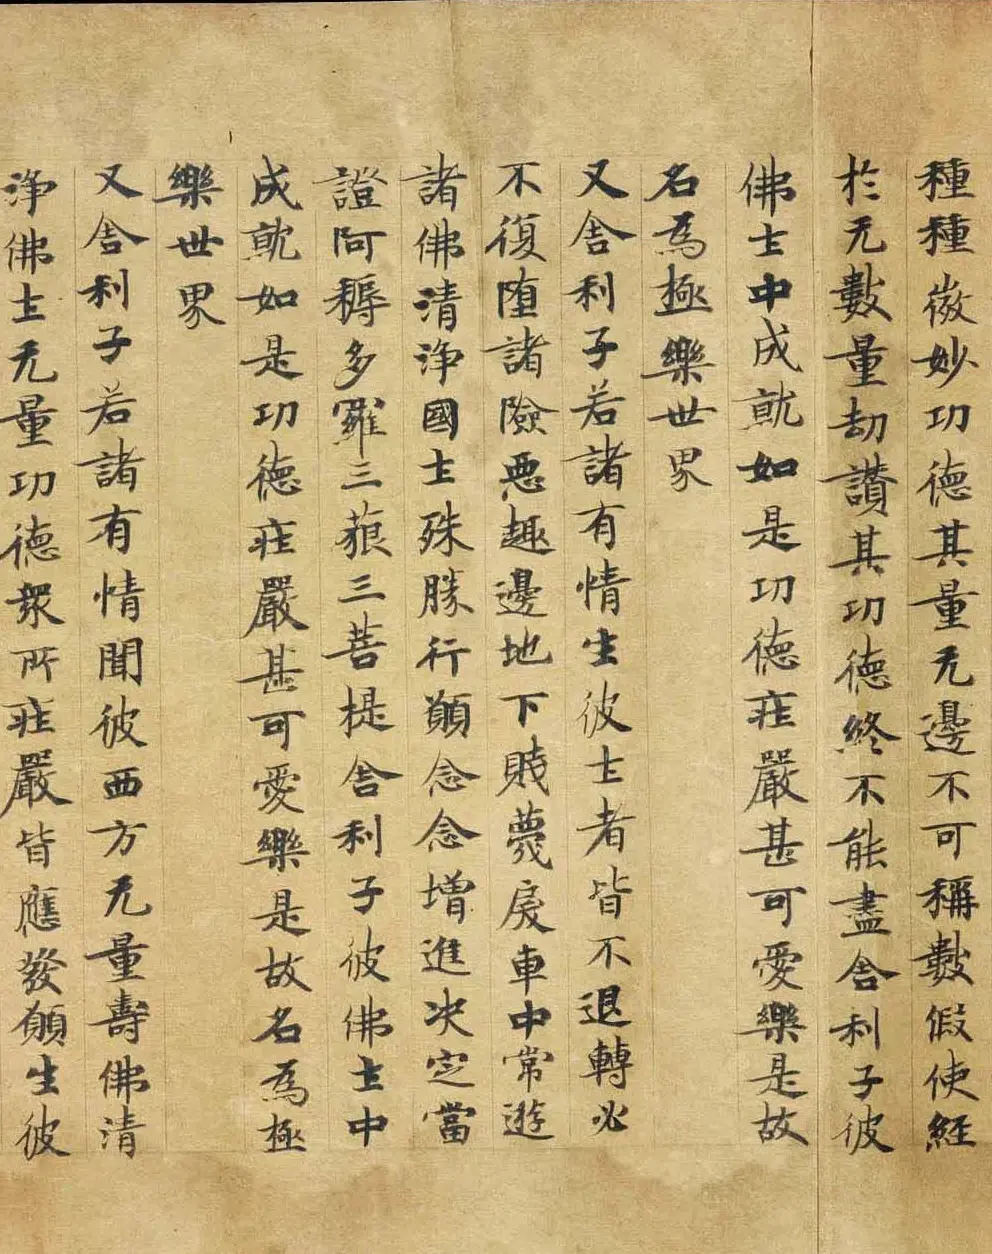 種種微妙功德其量无邊不可稱數假使經
於无數量劫讚其功德終不能盡舍利子彼
佛土中成就如是功德莊嚴甚可愛樂是故
名為極樂世界
又舍利子若諸有情生彼土者皆不退轉必
不復墮諸險惡趣邊地下賤蔑戾車中常遊
諸佛清淨國土殊勝行願念念增進決定當
證阿耨多羅三藐三菩提舍利子彼佛土中
成就如是功德莊嚴甚可愛樂是故名為極
樂世界
又舍利子若諸有情聞彼西方无量壽佛清
淨佛土无量功德衆所莊嚴皆應發願生彼